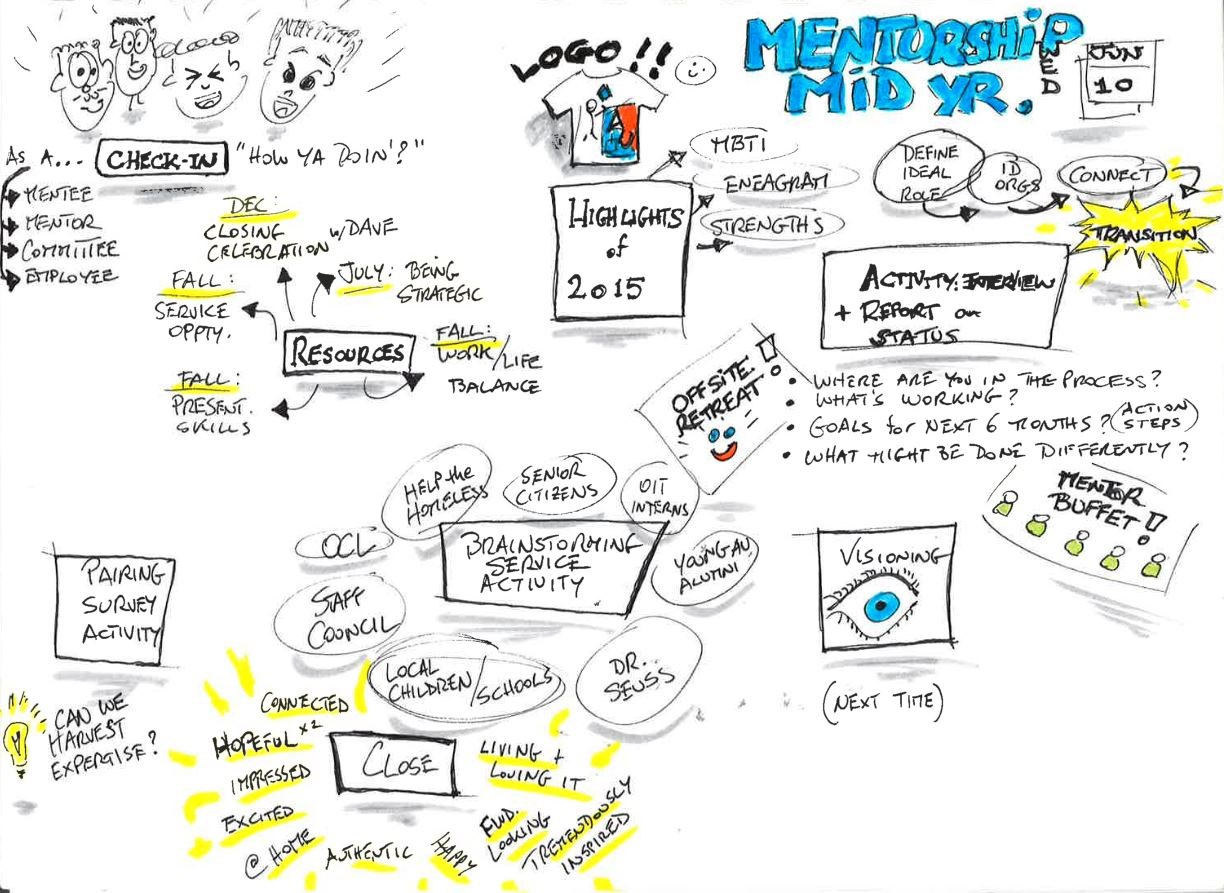 LOGO!!
MENTORSHIP
MID YR.
WED
JUN
10
As A...
CHECK-IN
"HOW YA DOIN'?"
MENTEE
MENTOR
COMMITTEE
EMPLOYEE
DEC:
CLOSING
CELEBRATION
w/DAVE
JULY: BEING
STRATEGIC
FALL:
SERVICE
OPPTY.
RESOURCES
FALL:
WORK/LIFE
BALANCE
FALL:
PRESENT.
SKILLS
HIGHLIGHTS
of
2015
MBTI
ENEAGRAM
STRENGTHS
DEFINE
IDEAL
ROLE
ID
ORGS
CONNECT
TRANSITION
ACTIVITY: INTERVIEW
+ REPORT on
STATUS
OFFSITE
RETREAT!
• WHERE ARE YOU IN THE PROCESS?
• WHAT'S WORKING?
• GOALS for NEXT 6 MONTHS? (ACTION
STEPS)
• WHAT MIGHT BE DONE DIFFERENTLY?
MENTOR
BUFFET!
HELP the
HOMELESS
SENIOR
CITIZENS
OIT
INTERNS
OCL
BRAINSTORMING
SERVICE
ACTIVITY
YOUNG AU
ALUMNI
STAFF
COUNCIL
LOCAL
CHILDREN/SCHOOLS
DR.
SEUSS
VISIONING
(NEXT TIME)
PAIRING
SURVEY
ACTIVITY
CAN WE
HARVEST
EXPERGISE?
CLOSE
CONNECTED
HOPEFUL x2
IMPRESSED
EXCITED
@ HOME
AUTHENTIC
HAPPY
FWD.
LOOKING
TREMENDOUSLY
INSPIRED
LIVING +
LOVING IT